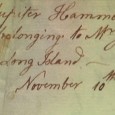 Jupiter Hammon
belonging to Mr
Long Island —
November 10th